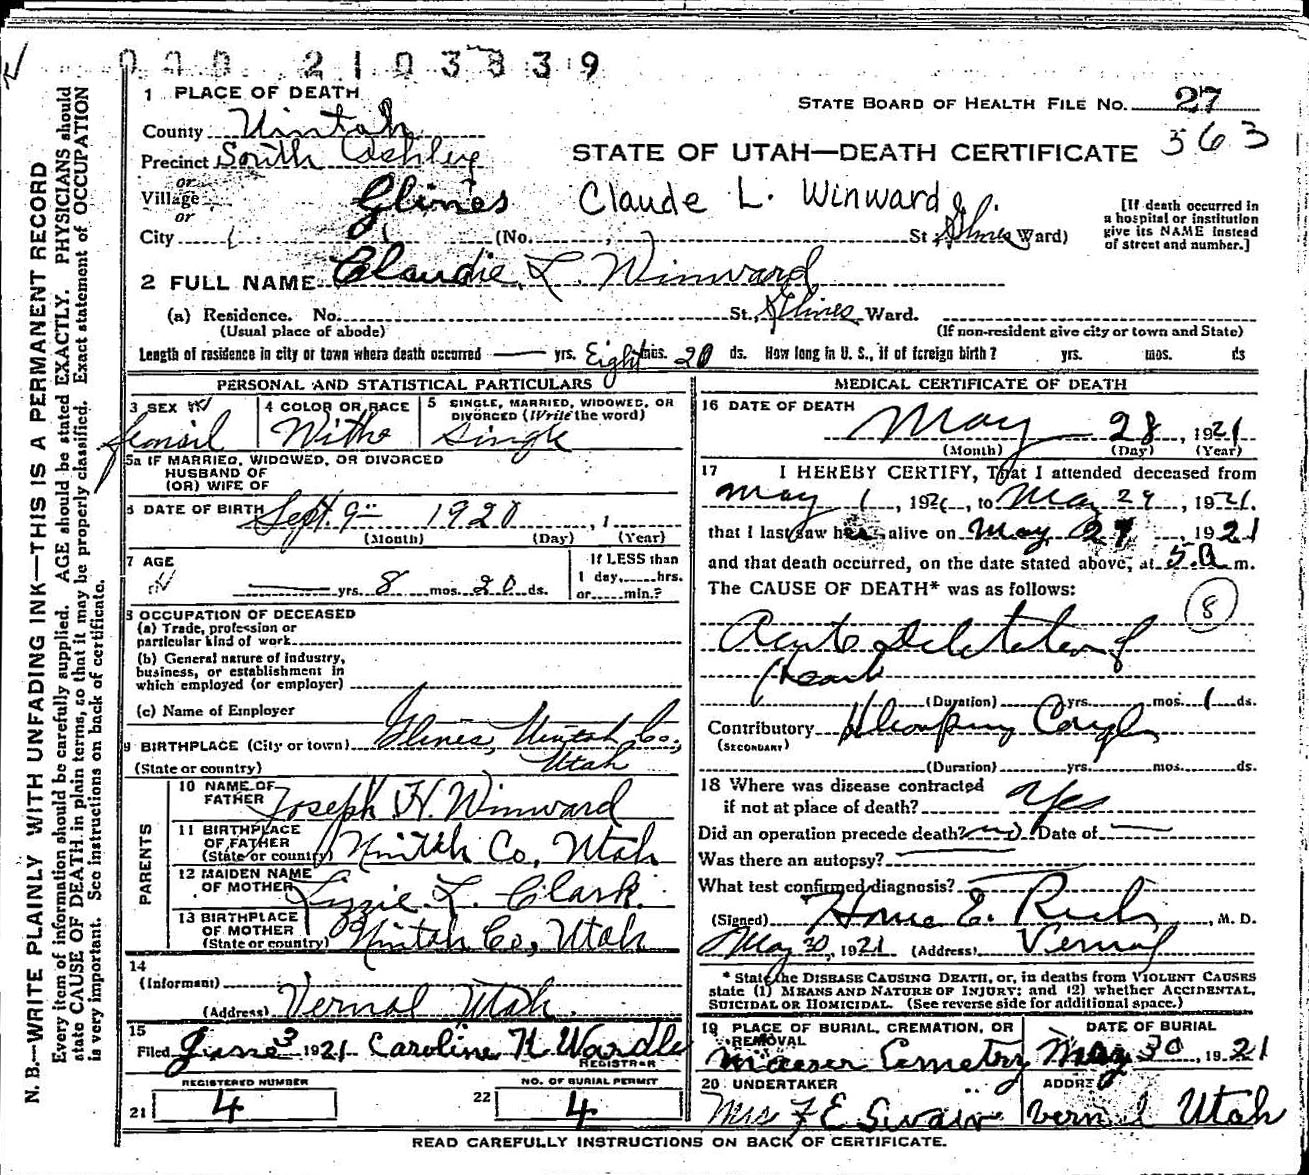 000 2103839
1 PLACE OF DEATH
STATE BOARD OF HEALTH FILE NO. 27
County Uintah
563
Precinct South Ashley
STATE OF UTAH—DEATH CERTIFICATE
or
Village Glines
Claude L. Winward
or
[If death occurred in a hospital or institution give its NAME instead of street and number.]
City (No. St. Glines Ward)
2 FULL NAME Claudie L. Winward
(a) Residence. No. St., Glines Ward.
(Usual place of abode) (If non-resident give city or town and State)
Length of residence in city or town where death occurred — yrs. Eight mos. 20 ds. How long in U. S., if of foreign birth? yrs. mos. ds
PERSONAL AND STATISTICAL PARTICULARS
3 SEX
Femail
4 COLOR OR RACE
Withe
5 SINGLE, MARRIED, WIDOWED, OR DIVORCED (Write the word)
Single
5a IF MARRIED, WIDOWED, OR DIVORCED
HUSBAND OF
(OR) WIFE OF
6 DATE OF BIRTH Sept. 9 1920 , 1
(Month) (Day) (Year)
7 AGE
— yrs. 8 mos. 20 ds.
If LESS than
1 day, hrs.
or min.?
8 OCCUPATION OF DECEASED
(a) Trade, profession or
particular kind of work
(b) General nature of industry,
business, or establishment in
which employed (or employer)
(c) Name of Employer
9 BIRTHPLACE (City or town) Glines, Uintah Co,
(State or country) Utah
PARENTS
10 NAME OF
FATHER Joseph H. Winward
11 BIRTHPLACE
OF FATHER
(State or country) Uintah Co, Utah
12 MAIDEN NAME
OF MOTHER Lizzie L. Clark
13 BIRTHPLACE
OF MOTHER
(State or country) Uintah Co, Utah
14
(Informant)
(Address) Vernal Utah.
15
Filed June 3 1921 Caroline H. Wardle
REGISTRAR
REGISTERED NUMBER
21 4
NO. OF BURIAL PERMIT
22 4
MEDICAL CERTIFICATE OF DEATH
16 DATE OF DEATH
May 28, 1921
(Month) (Day) (Year)
17 I HEREBY CERTIFY, That I attended deceased from
May 1, 1921, to May 29, 1921.
that I last saw h alive on May 27 1921
and that death occurred, on the date stated above, at 5 a m.
The CAUSE OF DEATH* was as follows:
8
Acute Dilitation of
heart
(Duration) yrs. mos. 1 ds.
Contributory Whooping Cough
(SECONDARY)
(Duration) yrs. mos. ds.
18 Where was disease contracted
if not at place of death? Yes
Did an operation precede death? no. Date of —
Was there an autopsy?
What test confirmed diagnosis?
(Signed) E. Rich, M. D.
May 30, 1921 (Address) Vernal
* State the DISEASE CAUSING DEATH, or, in deaths from VIOLENT CAUSES
state (1) MEANS AND NATURE OF INJURY; and (2) whether ACCIDENTAL,
SUICIDAL OR HOMICIDAL. (See reverse side for additional space.)
19 PLACE OF BURIAL, CREMATION, OR
REMOVAL
Maeser Cemetry
DATE OF BURIAL
May 30, 1921
20 UNDERTAKER
Mrs F E Swain
ADDRE
Vernal Utah
READ CAREFULLY INSTRUCTIONS ON BACK OF CERTIFICATE.
N. B.—WRITE PLAINLY WITH UNFADING INK—THIS IS A PERMANENT RECORD
Every item of information should be carefully supplied. AGE should be stated EXACTLY. PHYSICIANS should
state CAUSE OF DEATH in plain terms, so that it may be properly classified. Exact statement of OCCUPATION
is very important. See instructions on back of certificate.